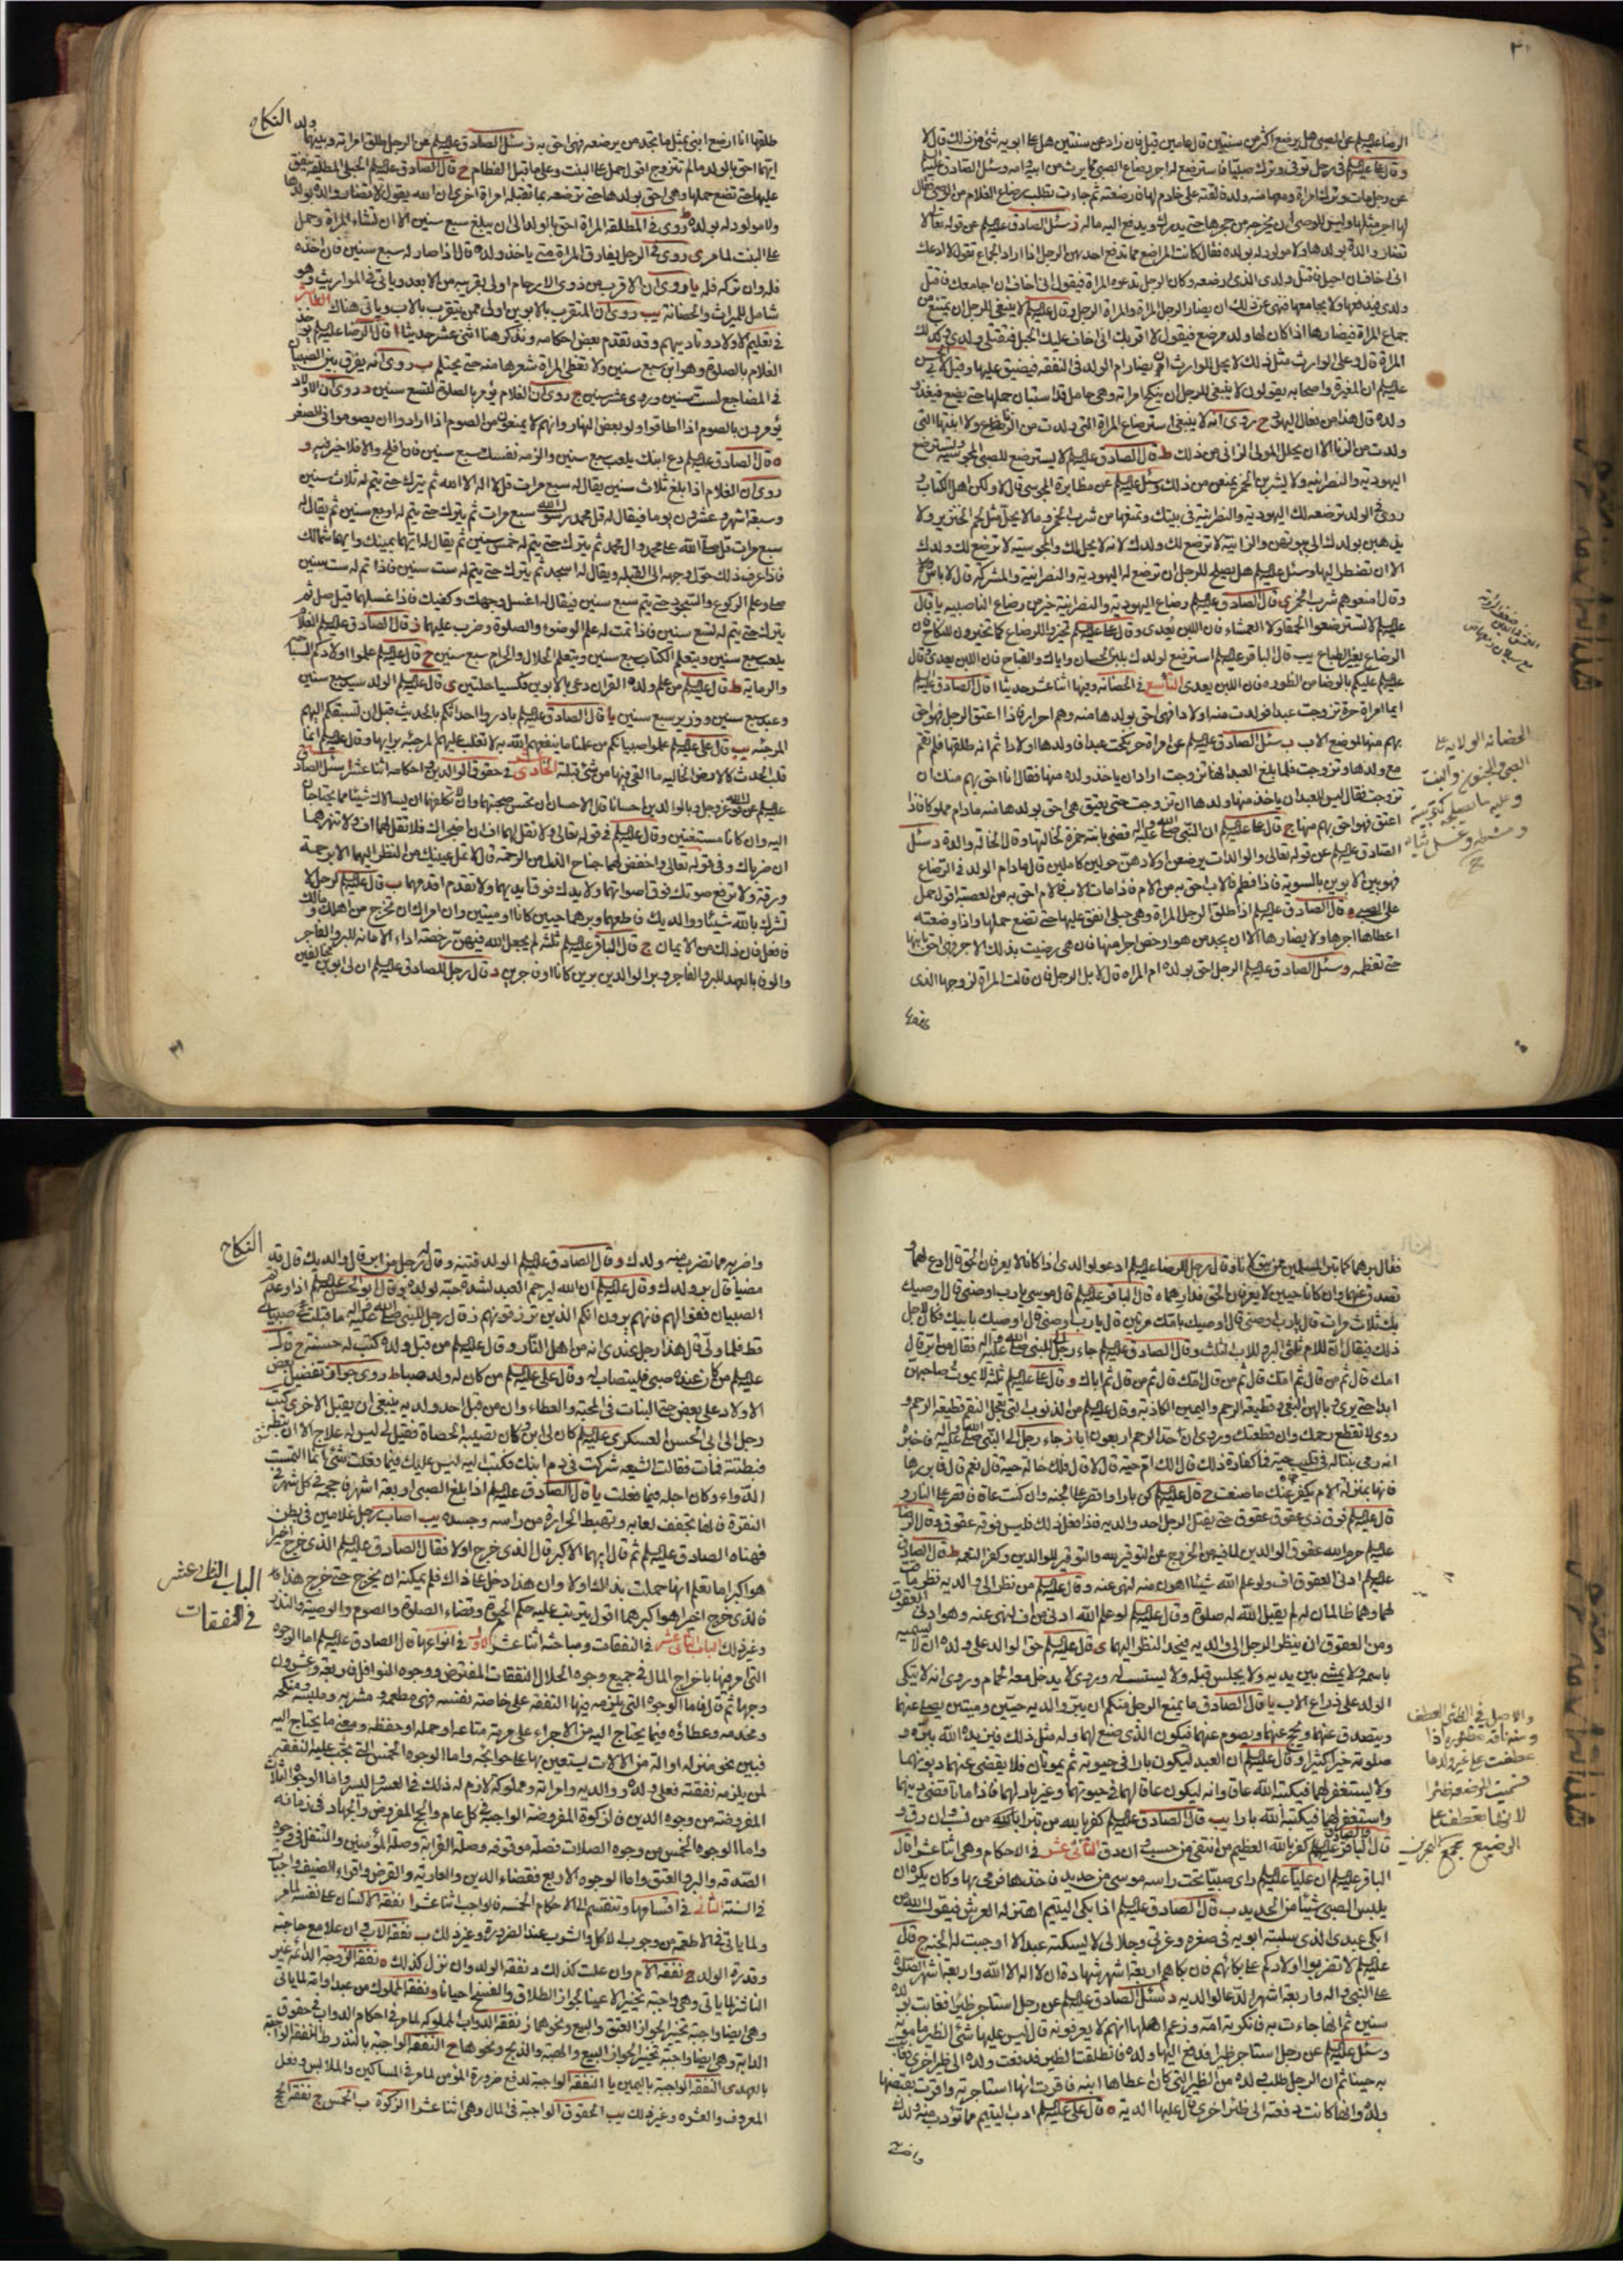 الرضا عليلم عن الصبي هل يرضع اكثر من سنتين قال عامين قيل فان زاد عن سنتين هل على ابويه شئ من ذلك قال لا
عن رجل مات وترك امراة ومعها منه ولد فالقته على خادم لها فارضعته ثم جاءت تطلب رضاع الغلام من الوصي فقال
لها اجر مثلها وليس للوصي ان يخرجه من حجرها حتى يدرك ويدفع اليه ماله ز سئل الصادق عليلم عن قوله تعالى لا
تضار والدة بولدها ولا مولود له بولده فقال كانت المراضع مما تدفع احديهن الرجل اذا اراد الجماع تقول لا ادعك
انى اخاف ان احبل فاقتل ولدى الذي ارضعه وكان الرجل تدعوه المراة فيقول انى اخاف ان اجامعك فاقتل
ولدى فيدفعها ولا يجامعها فنهى عن ذلك ان يضار الرجل المراة والمراة الرجل
جماع المراة فيضارها اذا كان لها ولد مرضع فيقول لا اقربك انى اخاف عليك الحبل فتقتلى ولدى وكذلك
ولدت من الزنا الا ان يحلل المولى الزانى من ذلك ط قال الصادق عليلم لا يسترضع للصبي المجوسية ويسترضع
اليهودية والنصرانية ولا يشربن الخمر يمنعن من ذلك وسئل عليلم عن مظايرة المجوسي قال لا ولكن اهل الكتاب
يذهبن بولدك الى بيوتهن والزانية لا ترضع لك ولدك لانه لا يحل لك والمجوسية لا ترضع لك ولدك
الا ان تضطر اليها وسئل عليلم هل يصلح للرجل ان ترضع له اليهودية والنصرانية والمشركة قال لا باس
وقال امنعوهم شرب الخمر ى قال الصادق عليلم رضاع اليهودية والنصرانية خير من رضاع الناصبية يا قال
عليلم لا تسترضعوا الحمقاء ولا العمشاء فان اللبن يعدى وقال على عليلم تخيروا للرضاع كما تخيرون للنكاح فان
الرضاع يغير الطباع يب قال الباقر عليلم استرضع لولدك بلبن الحسان واياك والقباح فان اللبن يعدى وقال
عليلم عليكم بالوضاء من الظورة فان اللبن يعدى التاسع في الحضانة وفيها اثنا عشر حديثا ا قال الصادق عليلم
ايما امراة حرة تزوجت عبدا فولدت منه اولادا فهى احق بولدها منه وهم احرار فاذا اعتق الرجل فهو احق
بهم منها لموضع الاب ب سئل الصادق عليلم عن امراة حرة نكحت عبدا فاولدها اولادا ثم انه طلقها فلم تقم
مع ولدها وتزوجت فلما بلغ العبد انها تزوجت اراد ان ياخذ ولده منها فقال انا احق بهم منك ان
تزوجت فقال ليس للعبد ان ياخذ منها ولدها ان تزوجت حتى يعتق هى احق بولدها منه مادام مملوكا فاذا
اعتق فهو احق بهم منها ج قال على عليلم ان النبي صلى الله عليه واله قضى بابنة حمزة لخالتها وقال الخالة والدة د سئل
الصادق عليلم عن قوله تعالى والوالدات يرضعن اولادهن حولين كاملين قال مادام الولد في الرضاع
فهو بين الابوين بالسوية فاذا فطم فالاب احق به من الام فاذا مات الاب فالام احق به من العصبة اقول حمل
على الصبي ه قال الصادق عليلم اذا طلق الرجل المراة وهى حبلى انفق عليها حتى تضع حملها واذا وضعته
اعطاها اجرها ولا يضارها الا ان يجد من هو ارخص اجرا منها فان هى رضيت بذلك الاجر فهى احق بابنها
حتى تفطمه و سئل الصادق عليلم الرجل احق بولده ام المراة قال لا بل الرجل فان قالت المراة لزوجها الذى
الحضانة الولاية على
الصبي والمجنون والبنت
النكاح
طلقها انا ارضع ابنى بمثل ما تجد من يرضعه فهى احق به ز سئل الصادق عليلم عن الرجل طلق امراته وبينهما ولد
ايهما احق بالولد قال المراة ما لم تتزوج اقول حمل على البنت وعلى ما قبل الفطام ح قال الصادق عليلم الحبلى المطلقة ينفق
عليها حتى تضع حملها وهى احق بولدها حتى ترضعه بما تقبله امراة اخرى ان الله يقول لا تضار والدة بولدها
ولا مولود له بولده ط روى في المطلقة المراة احق بالولد الى ان يبلغ سبع سنين الا ان تشاء المراة وحمل
على البنت لما مر ى روى في الرجل يفارق المراة متى ياخذ ولده قال اذا صار له سبع سنين فان اخذه
فله وان تركه فله يا روى ان الاقرب من ذوى الارحام اولى بقريبه من الابعد وياتى في المواريث وهو
شامل للميراث والحضانة يب روى ان المتقرب بالابوين اولى ممن يتقرب بالاب وياتى هناك العاشر
في تعليم الاولاد وتاديبهم وقد تقدم بعض احكامه ونذكر هنا اثنى عشر حديثا ا قال الرضا عليلم يؤخذ
الغلام بالصلوة وهو ابن سبع سنين ولا تغطى المراة شعرها منه حتى يحتلم ب روى انه يفرق بين الصبيان
في المضاجع لست سنين وروى عشر سنين ج روى ان الغلام يؤمر بالصلوة لتسع سنين د روى ان الاولاد
يؤمرون بالصوم اذا اطاقوا ولو بعض النهار وانهم لا يمنعون من الصوم اذا ارادوا ان يصوموا في الصغر
ه قال الصادق عليلم دع ابنك يلعب سبع سنين والزمه نفسك سبع سنين فان افلح والا فلا خير فيه و
روى ان الغلام اذا بلغ ثلاث سنين يقال له سبع مرات قل لا اله الا الله ثم يترك حتى يتم له ثلاث سنين
وسبعة اشهر وعشرون يوما فيقال له قل محمد رسول الله سبع مرات ثم يترك حتى يتم له اربع سنين ثم يقال له
سبع مرات قل صلى الله على محمد وال محمد ثم يترك حتى يتم له خمس سنين ثم يقال له ايهما يمينك وايهما شمالك
فاذا عرف ذلك حول وجهه الى القبلة ويقال له اسجد ثم يترك حتى يتم له ست سنين فاذا تم له ست سنين
صلى وعلم الركوع والسجود حتى يتم سبع سنين فيقال له اغسل وجهك وكفيك فاذا غسلهما قيل صل ثم
يترك حتى يتم له تسع سنين فاذا تمت له علم الوضوء والصلوة وضرب عليهما ز قال الصادق عليلم الغلام
يلعب سبع سنين ويتعلم الكتاب سبع سنين ويتعلم الحلال والحرام سبع سنين ح قال عليلم علموا اولادكم السباحة
والرماية ط قال عليلم من علم ولده القران دعى بالابوين فكسيا حلتين ى قال عليلم الولد سيد سبع سنين
وعبد سبع سنين ووزير سبع سنين يا قال الصادق عليلم بادروا احداثكم بالحديث قبل ان تسبقكم اليهم
المرجئة يب قال على عليلم علموا صبيانكم من علمنا ما ينفعهم الله به لا تغلب عليهم المرجئة برايها وقال عليلم انما
قلب الحدث كالارض الخالية ما القى فيها من شئ قبلته الحادى عشر في حقوق الوالدين واحكامه اثنا عشر ا سئل الصادق
عليلم عن قول الله عز وجل وبالوالدين احسانا قال الاحسان ان تحسن صحبتهما وان لا تكلفهما ان يسالاك شيئا مما يحتاجان
اليه وان كانا مستغنيين وقال عليلم في قوله تعالى ولا تقل لهما اف ان اضجراك فلا تقل لهما اف ولا تنهرهما
ان ضرباك وفى قوله تعالى واخفض لهما جناح الذل من الرحمة قال لا تمل عينيك من النظر اليهما الا برحمة
ورقة ولا ترفع صوتك فوق اصواتهما ولا يدك فوق ايديهما ولا تقدم اقدامهما ب قال عليلم لرجل لا
تشرك بالله شيئا ووالديك فاطعهما وبرهما حيين كانا او ميتين وان امراك ان تخرج من اهلك ومالك
فافعل فان ذلك من الايمان ج قال الباقر عليلم ثلثة لم يجعل الله فيهن رخصة اداء الامانة للبر والفاجر
والوفاء بالعهد للبر والفاجر وبر الوالدين برين كانا او فاجرين د قال رجل للصادق عليلم ان لى ابوين مخالفين
فقال برهما كما تبر المسلمين ممن يتولانا وقال رجل للرضا عليلم ادعو لوالدى اذا كانا لا يعرفان الحق قال ادع لهما و
تصدق عنهما وان كانا حيين لا يعرفان الحق فدارهما ه قال الباقر عليلم قال موسى يا رب اوصنى قال اوصيك
بك ثلاث مرات قال يا رب اوصنى قال اوصيك بامك مرتين قال يا رب اوصنى قال اوصيك بابيك فكان لاجل
ذلك فيقال ان للام ثلثى البر وللاب الثلث و قال الصادق عليلم جاء رجل الى النبي صلى الله عليه واله فقال من ابر قال
امك قال ثم من قال ثم امك قال ثم من قال امك قال ثم من قال ثم اباك و قال على عليلم ثلثة لا يموت صاحبهن
ابدا حتى يرى وبالهن البغى وقطيعة الرحم واليمين الكاذبة وقال عليلم من الذنوب التى تعجل النقم قطيعة الرحم و
قال عليلم فوق ذى عقوق عقوق حتى يقتل الرجل احد والديه فاذا فعل ذلك فليس فوقه عقوق وقال الرضا
عليلم حرم الله عقوق الوالدين لما فيه من الخروج عن التوقير لله والتوقير للوالدين وكفر النعمة ط قال الصادق
عليلم ادنى العقوق اف ولو علم الله شيئا اهون منه لنهى عنه وقال عليلم من نظر الى والديه نظر ماقت
لهما وهما ظالمان له لم يقبل الله له صلوة وقال عليلم لو علم الله ادنى من اف لنهى عنه وهو ادنى العقوق
ومن العقوق ان ينظر الرجل الى والديه فيحد النظر اليهما ى قال عليلم حق الوالد على ولده ان لا يسميه
باسمه ولا يمشى بين يديه ولا يجلس قبله ولا يستسب له وروى لا يدخل معه الحمام وروى انه لا يتكى
الولد على ذراع الاب يا قال الصادق ما يمنع الرجل منكم ان يبر والديه حيين وميتين يصلى عنهما
ويتصدق عنهما ويحج عنهما ويصوم عنهما فيكون الذى صنع لهما وله مثل ذلك فيزيده الله ببره و
صلوته خيرا كثيرا وقال عليلم ان العبد ليكون بارا في حيوتهما ثم يموتان فلا يقضى عنهما ديونهما
ولا يستغفر لهما فيكتبه الله عاقا وانه ليكون عاقا لهما في حيوتهما وغير بار لهما فاذا ماتا قضى دينهما
واستغفر لهما فيكتبه الله بارا يب قال الصادق عليلم كفر بالله من تبرا من نسب وان دق و
قال الباقر والصادق عليلم كفر بالله العظيم من انتفى من حسب وان دق الثانى عشر في الاحكام وهى اثنا عشر ا قال
الباقر عليلم ان عليا عليلم راى صبيا تحت راسه موسى من حديد فاخذها فرمى بها وكان يكره ان
يلبس الصبي شيئا من الحديد ب قال الصادق عليلم اذا بكى اليتيم اهتز له العرش فيقول الله من
ابكى عبدى الذى سلبته ابويه في صغره وعزتى وجلالى لا يسكته عبد الا اوجبت له الجنة ج قال
عليلم لا تضربوا اولادكم على بكائهم فان بكاهم اربعة اشهر شهادة ان لا اله الا الله واربعة اشهر الصلوة
على النبي واله واربعة اشهر الدعا لوالديه د سئل الصادق عليلم عن رجل استاجر ظئرا فغابت بولده
سنين ثم انها جاءت به فانكرته امه وزعم اهلها انهم لا يعرفونه قال ليس عليها شئ الظئر مامونة
ولده وانها كانت دفعته الى ظئر اخرى قال عليها الدية ه قال على عليلم ادب اليتيم مما تؤدب منه ولدك
والاصل في الظئر العطف
عطفت على غير ولدها
لانها تعطف على
الرضيع مجمع البحرين
النكاح
واضربه مما تضرب منه ولدك و قال الصادق عليلم الولد فتنة وقال له رجل من ابر قال والديك قال قد
مضيا قال بر ولدك وقال عليلم ان الله ليرحم العبد لشدة حبه لولده و قال ابو الحسن عليلم اذا وعدتم
الصبيان ففوا لهم فانهم يرون انكم الذين ترزقونهم ز قال رجل للنبي صلى الله عليه واله ما قبلت صبيا
قط فلما ولى قال هذا رجل عندى انه من اهل النار وقال عليلم من قبل ولده كتب له حسنة ح قال
عليلم من كان عنده صبى فليتصاب له وقال على عليلم من كان له ولد صبا ط روى جواز تفضيل بعض
الاولاد على بعض حتى البنات في المحبة والعطاء وان من قبل احد ولديه ينبغى ان يقبل الاخر ى كتب
رجل الى ابى الحسن العسكرى عليلم كان لى ابن وكان تصيبه الحصاة فقيل لى ليس له علاج الا ان تبطه
فبططته فمات فقالت الشيعة شركت في دم ابنك فكتب اليه ليس عليك فيما فعلت شئ انما التمست
الدواء وكان اجله فيما فعلت يا قال الصادق عليلم اذا بلغ الصبى اربعة اشهر فاحجمه في كل شهر في
النقرة فانها تجفف لعابه وتهبط الحرارة من راسه وجسده يب اصاب رجل غلامين في بطن
فهناه الصادق عليلم ثم قال ايهما الاكبر قال الذى خرج اولا فقال الصادق عليلم الذى خرج اخيرا
هو اكبر اما تعلم انها حملت بذاك اولا وان هذا دخل على ذاك فلم يمكنه ان يخرج حتى خرج هذا
فالذى خرج اخرا هو اكبرهما اقول يترتب عليه حكم الحبوة وقضاء الصلوة والصوم والوصية والنذر
وغير ذلك الباب الثانى عشر في النفقات ومباحثه اثنا عشر الاول في انواعها قال الصادق عليلم اما الوجوه
التى امر فيها باخراج المال في جميع وجوه الحلال النفقات المفترض ووجوه النوافل فاربعة وعشرون
وجها ثم قال فاما الوجوه التى يلزمه فيها النفقة على خاصة نفسه فهى مطعمه ومشربه وملبسه ومنكحه
ومخدمه وعطاؤه فيما يحتاج اليه من الاجراء على مرمة متاعه او حمله او حفظه ومعنى ما يحتاج اليه
فبين نحو منزله او الة من الالات يستعين بها على حوائجه واما الوجوه الخمس التى تجب عليه النفقة
لمن يلزمه نفقته فعلى ولده ووالديه وامراته ومملوكه لازم له ذلك في العسر واليسر واما الوجوه الثلاث
المفروضة من وجوه الدين فالزكوة المفروضة الواجبة في كل عام والحج المفروض والجهاد في زمانه
واما الوجوه الخمس من وجوه الصلات فصلة موقوفة وصلة القرابة وصلة المؤمنين والتنفل في وجوه
الصدقة والبر والعتق واما الوجوه الاربع فقضاء الدين والعارية والقرض واقراء الضيف واجبات
في السنة الثانى في اقسامها وتنقسم الى الاحكام الخمسة فالواجب اثنا عشر ا نفقة الانسان على نفسه لما مر
ولما ياتى في الاطعمة من وجوب الاكل والشرب عند الضرورة وغير ذلك ب نفقة الاب وان علا مع حاجته
وقدرة الولد ج نفقة الام وان علت كذلك د نفقة الولد وان نزل كذلك ه نفقة الزوجة الدائمة غير
الناشز لما ياتى وهى واجبة تخييرا لا عينا لجواز الطلاق والفسخ احيانا و نفقة المملوك من عبد او امة لما ياتى
وهى ايضا واجبة تخييرا لجواز العتق والبيع ونحوهما ز نفقة الدواب المملوكة لما مر في احكام الدواب في حقوق
الدابة وهى ايضا واجبة تخييرا لجواز البيع والهبة والذبح ونحوها ح النفقة الواجبة بالنذر ط النفقة الواجبة
بالعهد ى النفقة الواجبة باليمين يا النفقة الواجبة لدفع ضرورة المؤمن لما مر في المساكين والملابس وفعل
المعروف والعشرة وغير ذلك يب الحقوق الواجبة في المال وهى اثنا عشر ا الزكوة ب الخمس ج نفقة الحج
الباب الثانى عشر
في النفقات